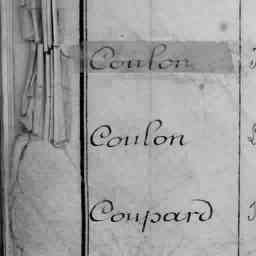 Coulon
Coulon
Coupard